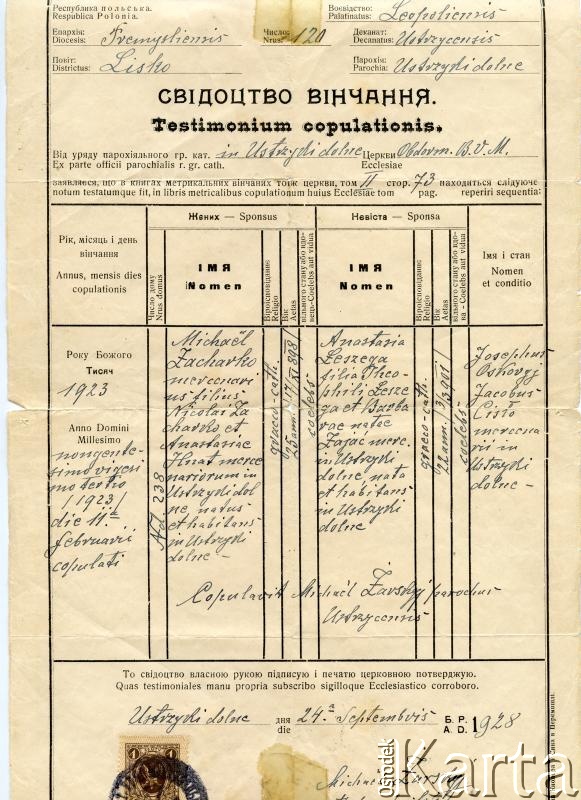 Република польська.
Respublica Polonia.
Воєвідство:
Palatinatus:
Leopoliensis
Епархія:
Diocesis:
Premysliensis
Число:
Nrus:
120
Деканат:
Decanatus:
Ustrzycensis
Повіт:
Districtus:
Lisko
Парохія:
Parochia:
Ustrzyki dolne
СВІДОЦТВО ВІНЧАННЯ.
Testimonium copulationis.
Від уряду парохіяльного гр. кат. in Ustrzyki dolne Церкви Obdorm. B. V. M.
Ex parte officii parochialis r. gr. cath. Ecclesiae
заявляється, що в книгах метрикальних вінчаних тоїж церкви, том II стор. 73 находиться слідуюче
notum testatumque fit, in libris metricalibus copulationum huius Ecclesiae tom pag. reperiri sequentia:
Рік, місяць і день
вінчання
Annus, mensis dies
copulationis
Жених — Sponsus
Число дому
Nrus domus
ІМЯ
Nomen
Віроісповіданнє
Religio
Вік
Aetas
вільного стану або вдо-
вець-Coelebs aut viduus
Невіста — Sponsa
ІМЯ
Nomen
Віроісповіданнє
Religio
Вік
Aetas
вільного стану або вдо-
ва - Coelebs aut vidua
Імя і стан
Nomen
et conditio
Року Божого
Тисяч
1923
Anno Domini
Millesimo
nongente-
simo vigesi-
mo tertio
/1923/
die 11.a
februarii
copulati
Nd. 238
Michaël
Zacharko
mercenari-
us filius
Nicolai Za-
charko et
Anastasiae
Hnat merce-
nariorum in
Ustrzyki dol-
ne, natus
et habitans
in Ustrzyki
dolne —
graeco-cath.
25 ann. 17/XI 898
coelebs
Anastasia
Leszega
filia Theo-
phili Lesze-
ga et Barba-
rae natae
Zając merc.
in Ustrzyki
dolne, nata
et habitans
in Ustrzyki
dolne
graeco-cath.
22 ann.
coelebs
Josephus
Jacobus
mercena-
rii in
Ustrzyki
dolne —
Copulavit Michaël Żarskyj parochus
Ustrzycensis
То свідоцтво власною рукою підписую і печатю церковною потверджую.
Quas testimoniales manu propria subscribo sigilloque Ecclesiastico corroboro.
Ustrzyki dolne дня 24.a Septembris Б. Р. 1928
die A. D.
1
1
Michaël Żarskyj
ośrodek
Karta